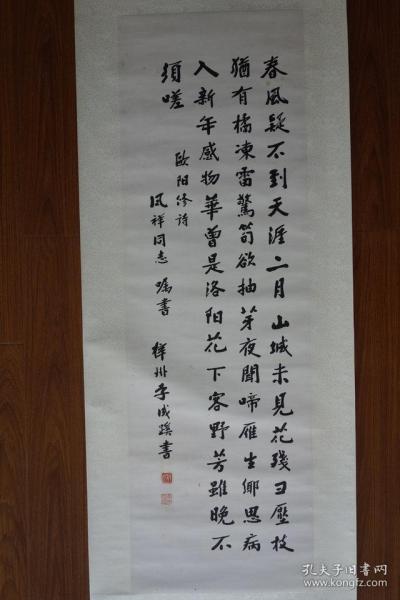 春風疑不到天涯二月山城未見花殘雪壓枝
猶有橘凍雷驚筍欲抽芽夜聞啼雁生鄉思病
入新年感物華曾是洛阳花下客野芳雖晚不
須嗟
歐阳修诗
凤祥同志嘱書
李成蹊書
孔夫子旧书网
www.kongfz.com